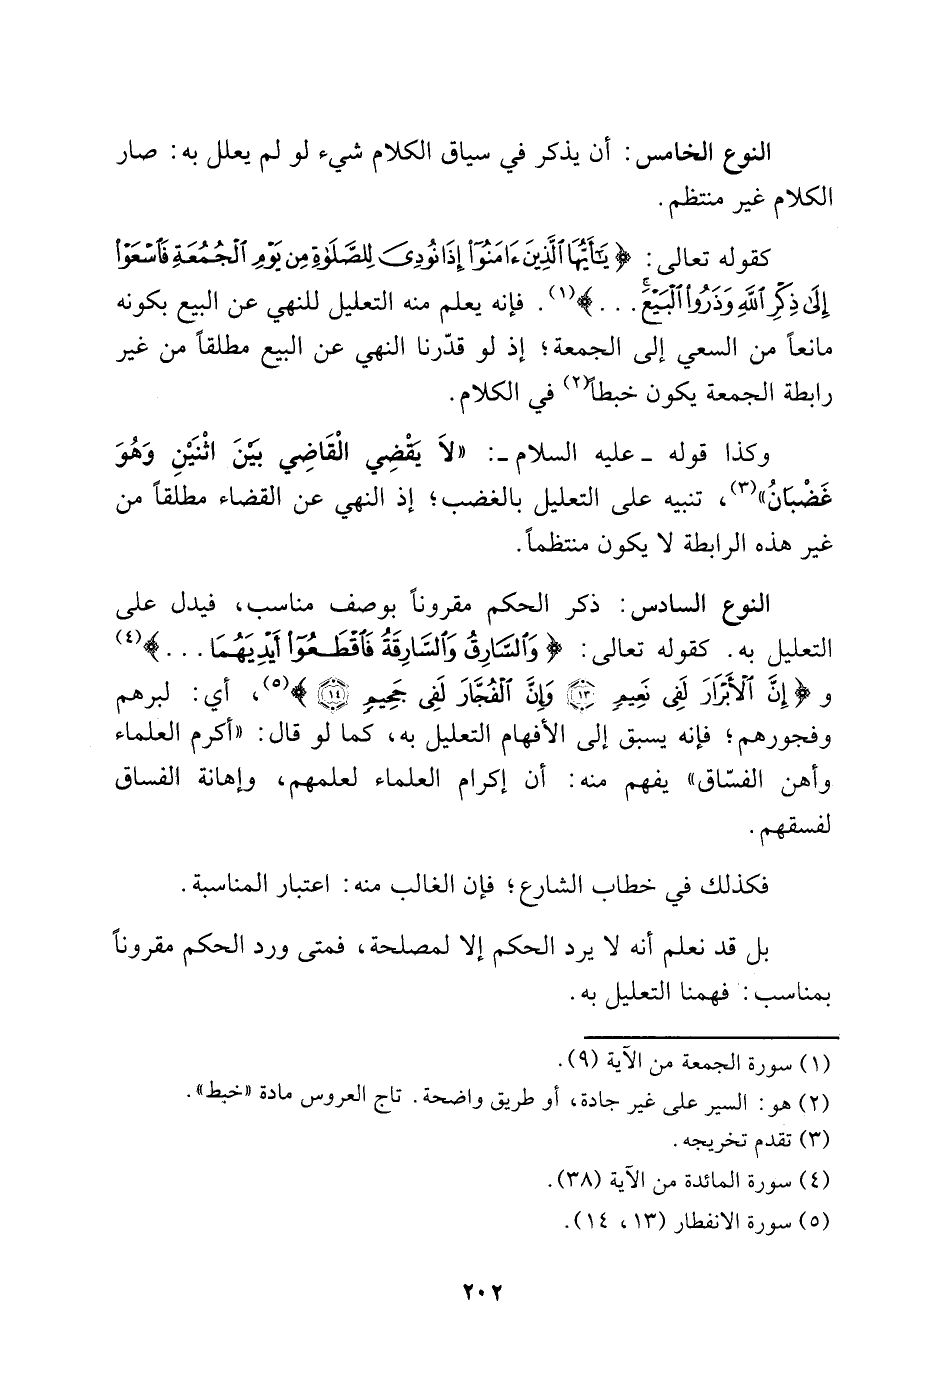 النوع الخامس: أن يذكر في سياق الكلام شيء لو لم يعلل به: صار
الكلام غير منتظم.
كقوله تعالى: ﴿يَٰٓأَيُّهَا ٱلَّذِينَ ءَامَنُوٓا۟ إِذَا نُودِىَ لِلصَّلَوٰةِ مِن يَوْمِ ٱلْجُمُعَةِ فَٱسْعَوْا۟
إِلَىٰ ذِكْرِ ٱللَّهِ وَذَرُوا۟ ٱلْبَيْعَۚ . . .﴾(١). فإنه يعلم منه التعليل للنهي عن البيع بكونه
مانعاً من السعي إلى الجمعة؛ إذ لو قدّرنا النهي عن البيع مطلقاً من غير
رابطة الجمعة يكون خبطاً(٢) في الكلام.
وكذا قوله ـ عليه السلام ـ: «لاَ يَقْضِي الْقَاضِي بَيْنَ اثْنَيْنِ وَهُوَ
غَضْبَانُ»(٣)، تنبيه على التعليل بالغضب؛ إذ النهي عن القضاء مطلقاً من
غير هذه الرابطة لا يكون منتظماً.
النوع السادس: ذكر الحكم مقروناً بوصف مناسب، فيدل على
التعليل به. كقوله تعالى: ﴿وَٱلسَّارِقُ وَٱلسَّارِقَةُ فَٱقْطَعُوٓا۟ أَيْدِيَهُمَا . . .﴾(٤)
و ﴿إِنَّ ٱلْأَبْرَارَ لَفِى نَعِيمٍ ١٣ وَإِنَّ ٱلْفُجَّارَ لَفِى جَحِيمٍ ١٤﴾(٥)، أي: لبرهم
وفجورهم؛ فإنه يسبق إلى الأفهام التعليل به، كما لو قال: «أكرم العلماء
وأهن الفسّاق» يفهم منه: أن إكرام العلماء لعلمهم، وإهانة الفساق
لفسقهم.
فكذلك في خطاب الشارع؛ فإن الغالب منه: اعتبار المناسبة.
بل قد نعلم أنه لا يرد الحكم إلا لمصلحة، فمتى ورد الحكم مقروناً
بمناسب: فهمنا التعليل به.
(١) سورة الجمعة من الآية (٩).
(٢) هو: السير على غير جادة، أو طريق واضحة. تاج العروس مادة «خبط».
(٣) تقدم تخريجه.
(٤) سورة المائدة من الآية (٣٨).
(٥) سورة الانفطار (١٣، ١٤).
٢٠٢